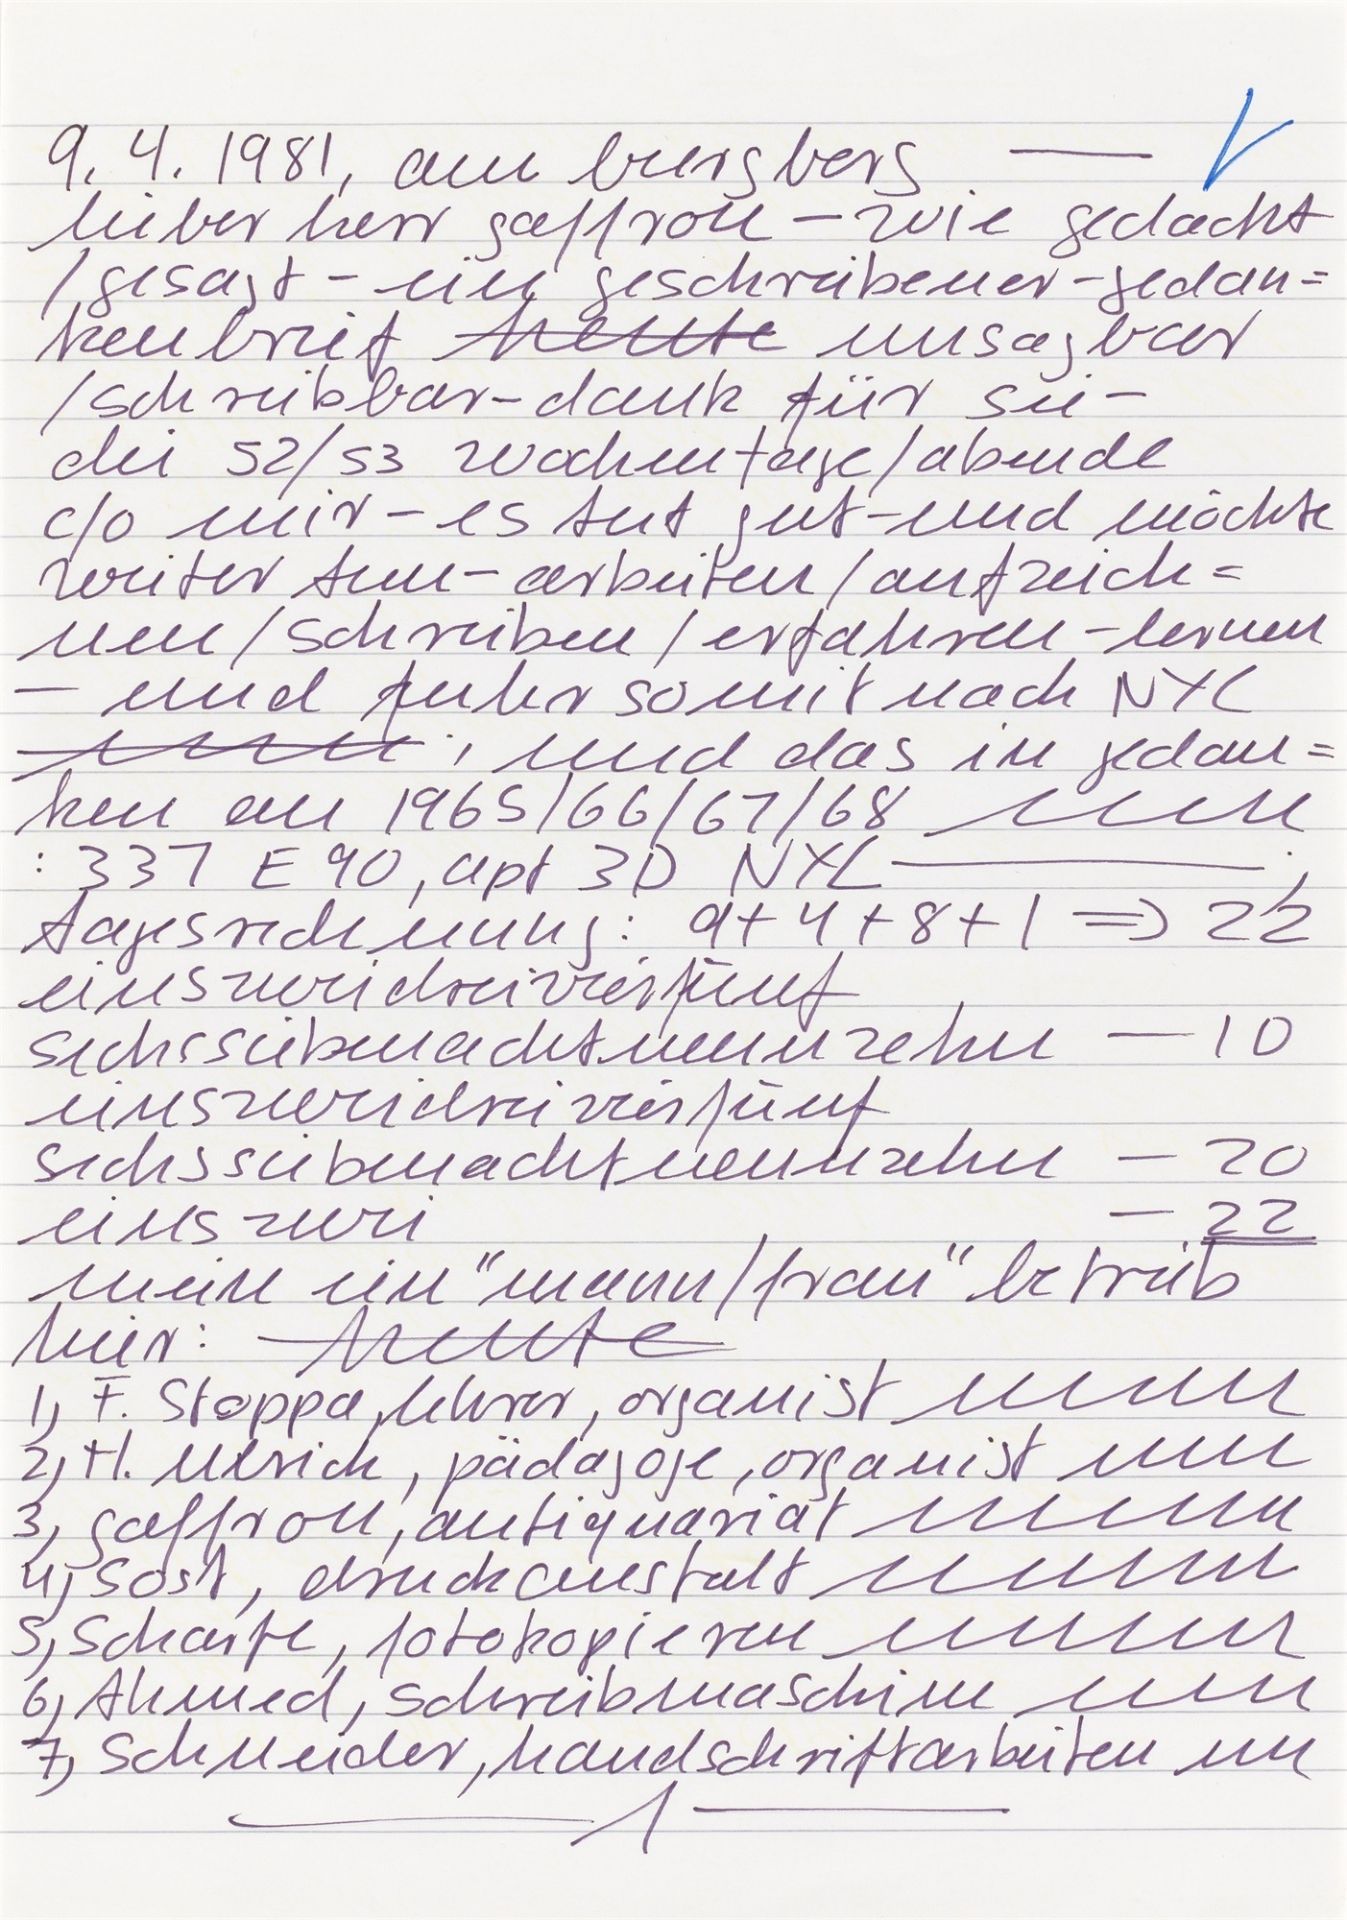 9. 4. 1981, am burgberg —
lieber herr gaffron – wie gedacht
/gesagt – ein geschriebener-gedan=
kenbrief heute unsagbar
/schreibbar-dank für sie –
die 52/53 wochentage/abende
c/o mir – es tut gut – und möchte
weiter tun – arbeiten/aufzeich=
nen/schreiben/erfahren – lernen
— und fuhr somit nach NYC
; und das in gedan=
ken an 1965/66/67/68
: 337 E 90, apt 3D NYC — ;
tagesrechnung: 9+4+8+1 => 22
einszweidreivierfünf
sechssiebenachtneunzehn — 10
einszweidreivierfünf
sechssiebenachtneunzehn — 20
einszwei — 22
mein ein "mann/frau" betrieb
hier: heute
1, F. Stoppa, lehrer, organist
2, H. Ulrich, pädagoge, organist
3, gaffron, antiquariat
4, Sost, druckanstalt
5, Scharfe, fotokopieren
6, Ahmed, schreibmaschine
7, Schneider, handschriftarbeiten
— 1 —